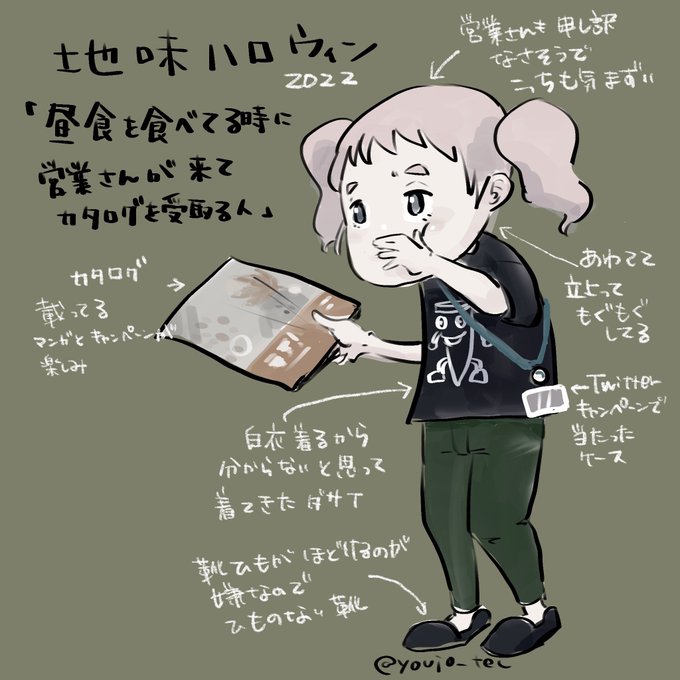 地味ハロウィン
2022
「昼食を食べてる時に
営業さんが来て
カタログを受取る人」
営業さんも申し訳
なさそうで
こっちも気まずい
カタログ
載ってる
マンガとキャンペーンが
楽しみ
あわてて
立上って
もぐもぐ
してる
Twitter
キャンペーンで
当たった
ケース
白衣着るから
分からないと思って
着てきたダサT
靴ひもがほどけるのが
嫌なので
ひものない靴
@youjo_tec